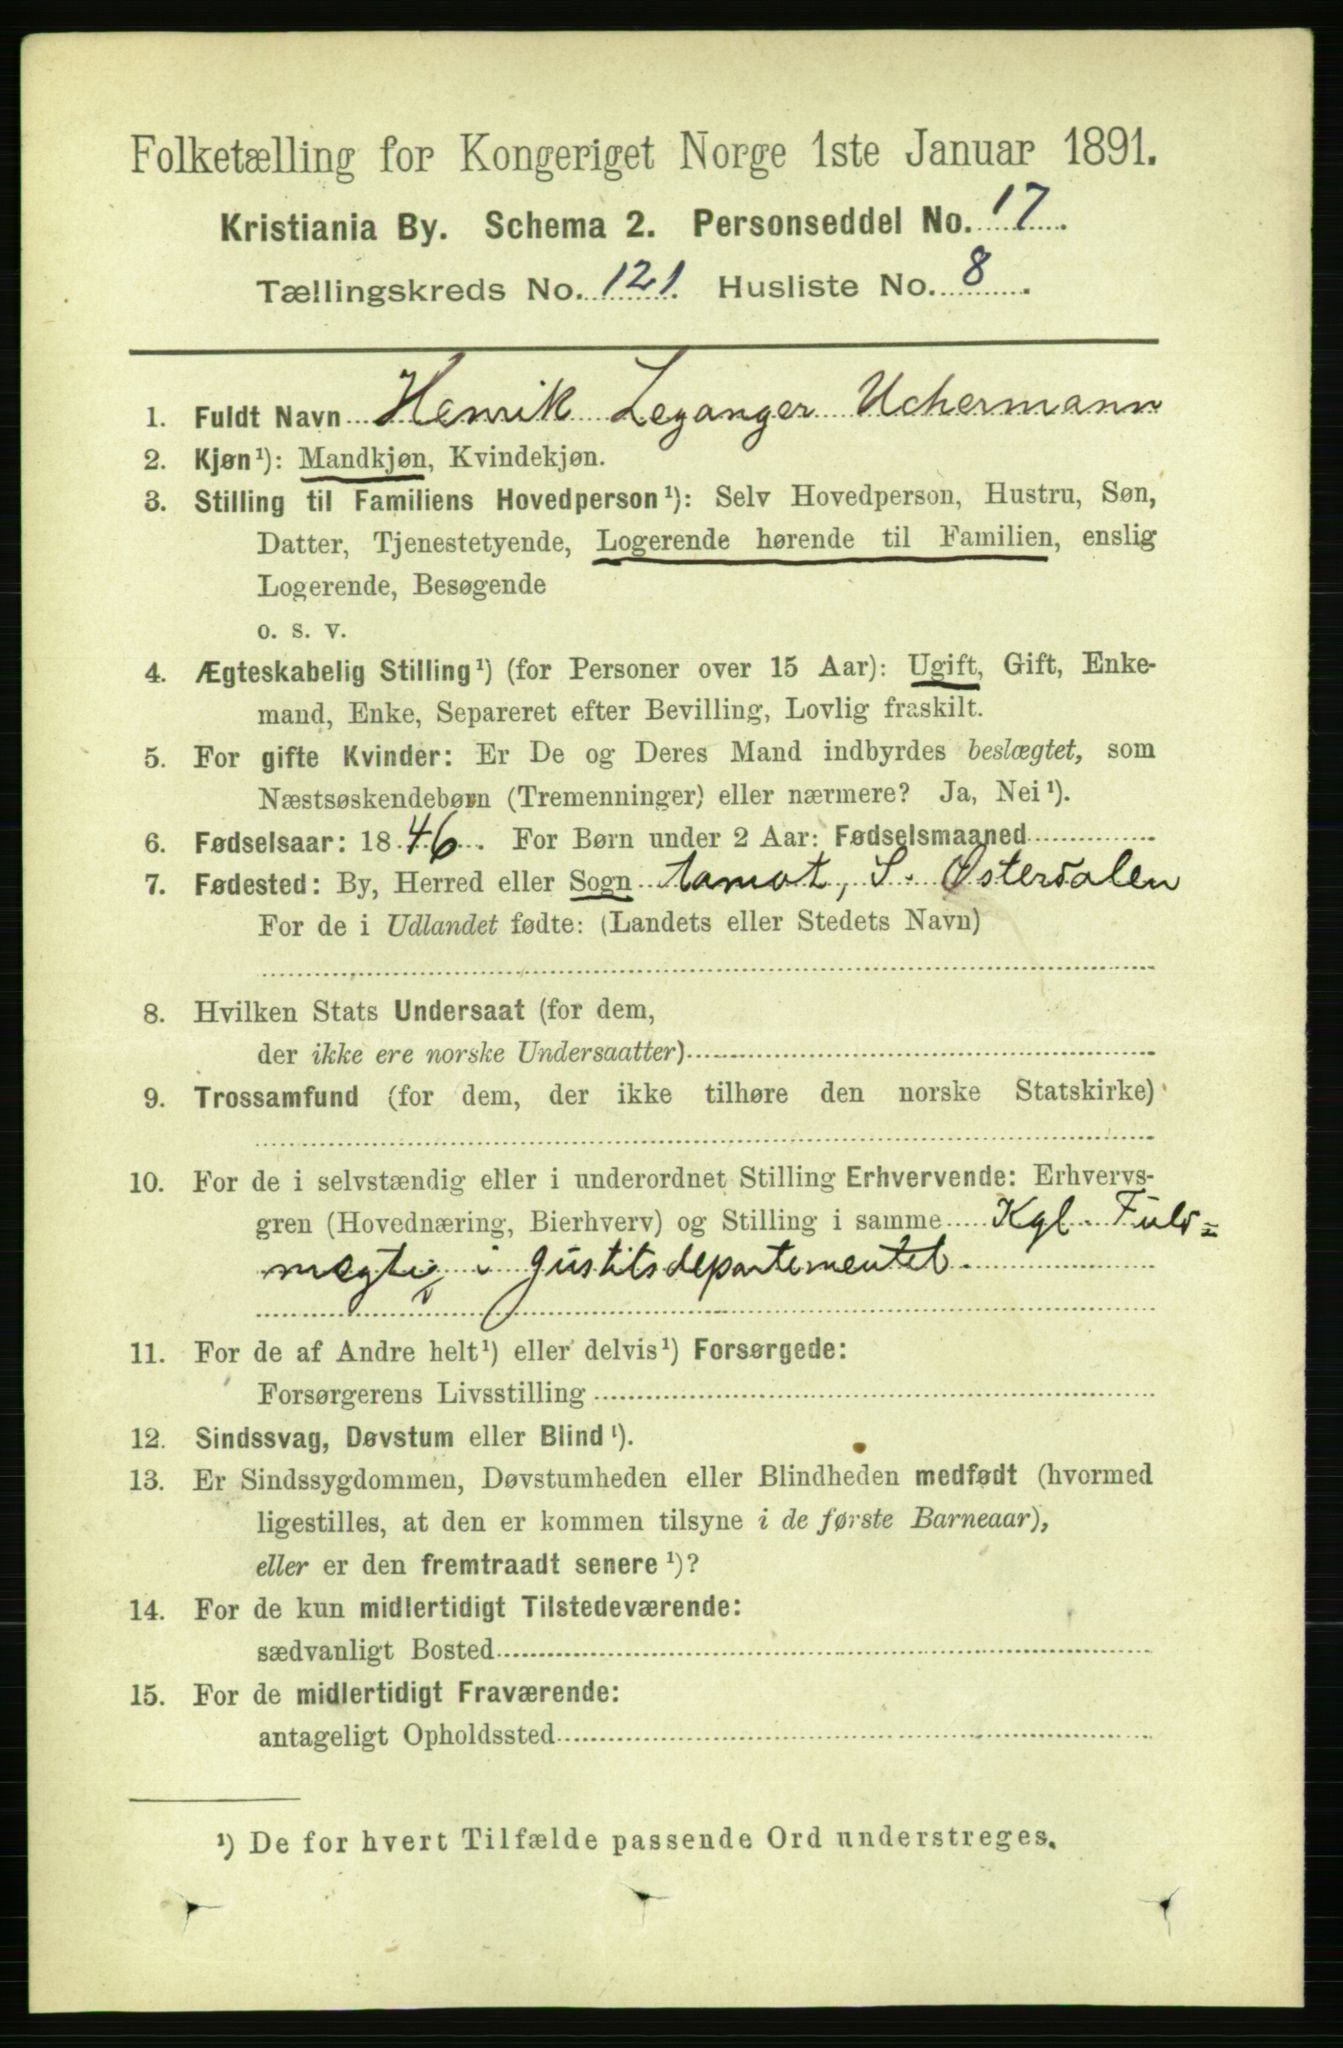 Folketælling for Kongeriget Norge 1ste Januar 1891.
Kristiania By. Schema 2. Personseddel No. 17.
Tællingskreds No. 121. Husliste No. 8.
1. Fuldt Navn Henrik Leganger Uchermann
2. Kjøn¹): Mandkjøn, Kvindekjøn.
3. Stilling til Familiens Hovedperson¹): Selv Hovedperson, Hustru, Søn,
Datter, Tjenestetyende, Logerende hørende til Familien, enslig
Logerende, Besøgende
o. s. v.
4. Ægteskabelig Stilling¹) (for Personer over 15 Aar): Ugift, Gift, Enke-
mand, Enke, Separeret efter Bevilling, Lovlig fraskilt.
5. For gifte Kvinder: Er De og Deres Mand indbyrdes beslægtet, som
Næstsøskendebørn (Tremenninger) eller nærmere? Ja, Nei¹).
6. Fødselsaar: 1846. For Børn under 2 Aar: Fødselsmaaned
7. Fødested: By, Herred eller Sogn Aamot, S. Østerdalen
For de i Udlandet fødte: (Landets eller Stedets Navn)
8. Hvilken Stats Undersaat (for dem,
der ikke ere norske Undersaatter)
9. Trossamfund (for dem, der ikke tilhøre den norske Statskirke)
10. For de i selvstændig eller i underordnet Stilling Erhvervende: Erhvervs-
gren (Hovednæring, Bierhverv) og Stilling i samme Kgl. Fuld=
mægtig i Justitsdepartementet.
11. For de af Andre helt¹) eller delvis¹) Forsørgede:
Forsørgerens Livsstilling
12. Sindssvag, Døvstum eller Blind¹).
13. Er Sindssygdommen, Døvstumheden eller Blindheden medfødt (hvormed
ligestilles, at den er kommen tilsyne i de første Barneaar),
eller er den fremtraadt senere¹)?
14. For de kun midlertidigt Tilstedeværende:
sædvanligt Bosted
15. For de midlertidigt Fraværende:
antageligt Opholdssted
¹) De for hvert Tilfælde passende Ord understreges.